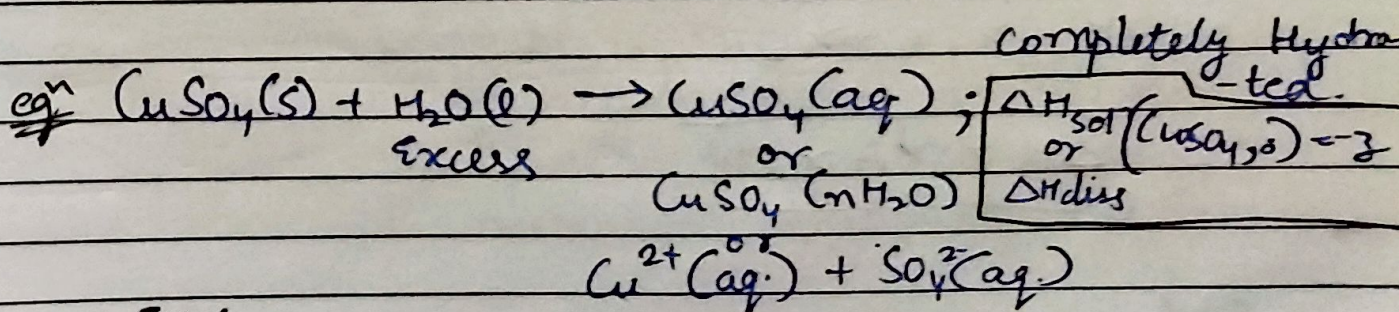 completely Hydra
-ted.
eqⁿ CuSO₄(s) + H₂O(l) → CuSO₄(aq) ; ΔHsol (CuSO₄,s) = -z
Excess or or
CuSO₄ (nH₂O) ΔHdiss
or
Cu²⁺(aq.) + SO₄²⁻(aq.)